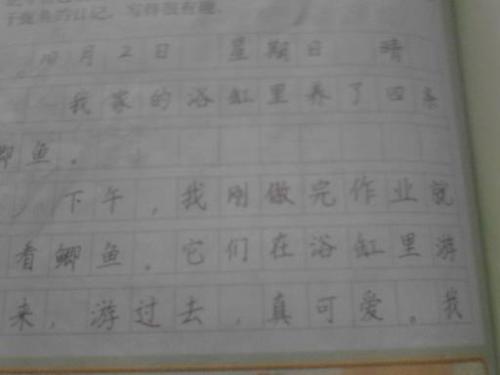 于观鱼的日记,写得很有趣。
10月2日 星期日 晴
我家的浴缸里养了四条
鲫鱼。
下午,我刚做完作业就
看鲫鱼。它们在浴缸里游
来,游过去,真可爱。我